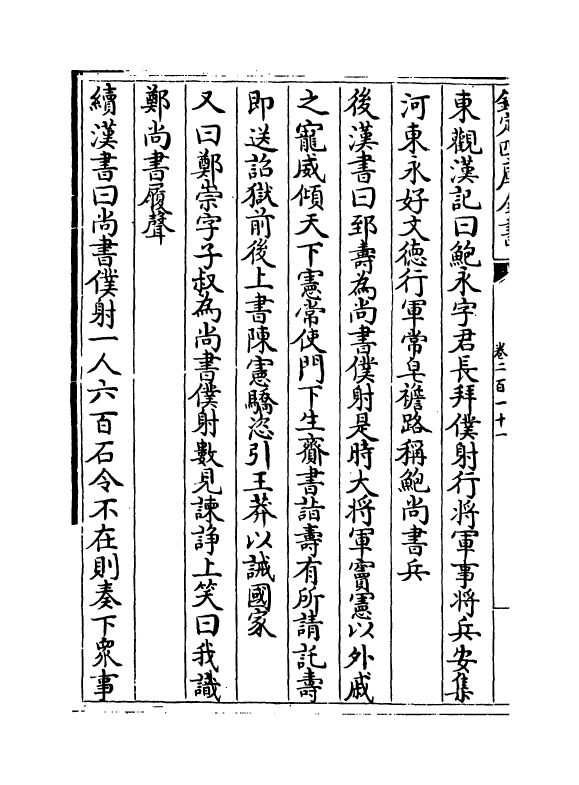 欽定四庫全書
卷二百一十一
東觀漢記曰鮑永字君長拜僕射行將軍事將兵安集
河東永好文德行軍常皂襜路稱鮑尚書兵
後漢書曰郅壽為尚書僕射是時大將軍竇憲以外戚
之寵威傾天下憲常使門下生齎書詣壽有所請託壽
即送詔獄前後上書陳憲驕恣引王莽以誡國家
又曰鄭崇字子叔為尚書僕射數見諫諍上笑曰我識
鄭尚書履聲
續漢書曰尚書僕射一人六百石令不在則奏下衆事